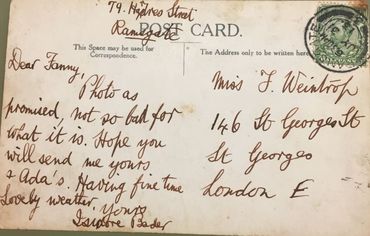 79. Hardres Street
Ramsgate
POST CARD.
This Space may be used for
Correspondence.
The Address only to be written here
Dear Fanny,
Photo as
promised, not so bad for
what it is. Hope you
will send me yours
& Ada's. Having fine time
Lovely weather. Yours
Isidore Bader
Miss F. Weintrop
146 St Georges St
St Georges
London E